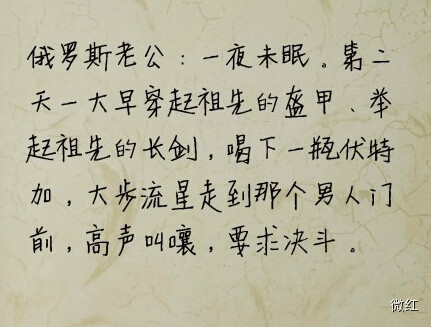 俄罗斯老公：一夜未眠。第二
天一大早穿起祖先的盔甲、举
起祖先的长剑，喝下一瓶伏特
加，大步流星走到那个男人门
前，高声叫嚷，要求决斗。
微红